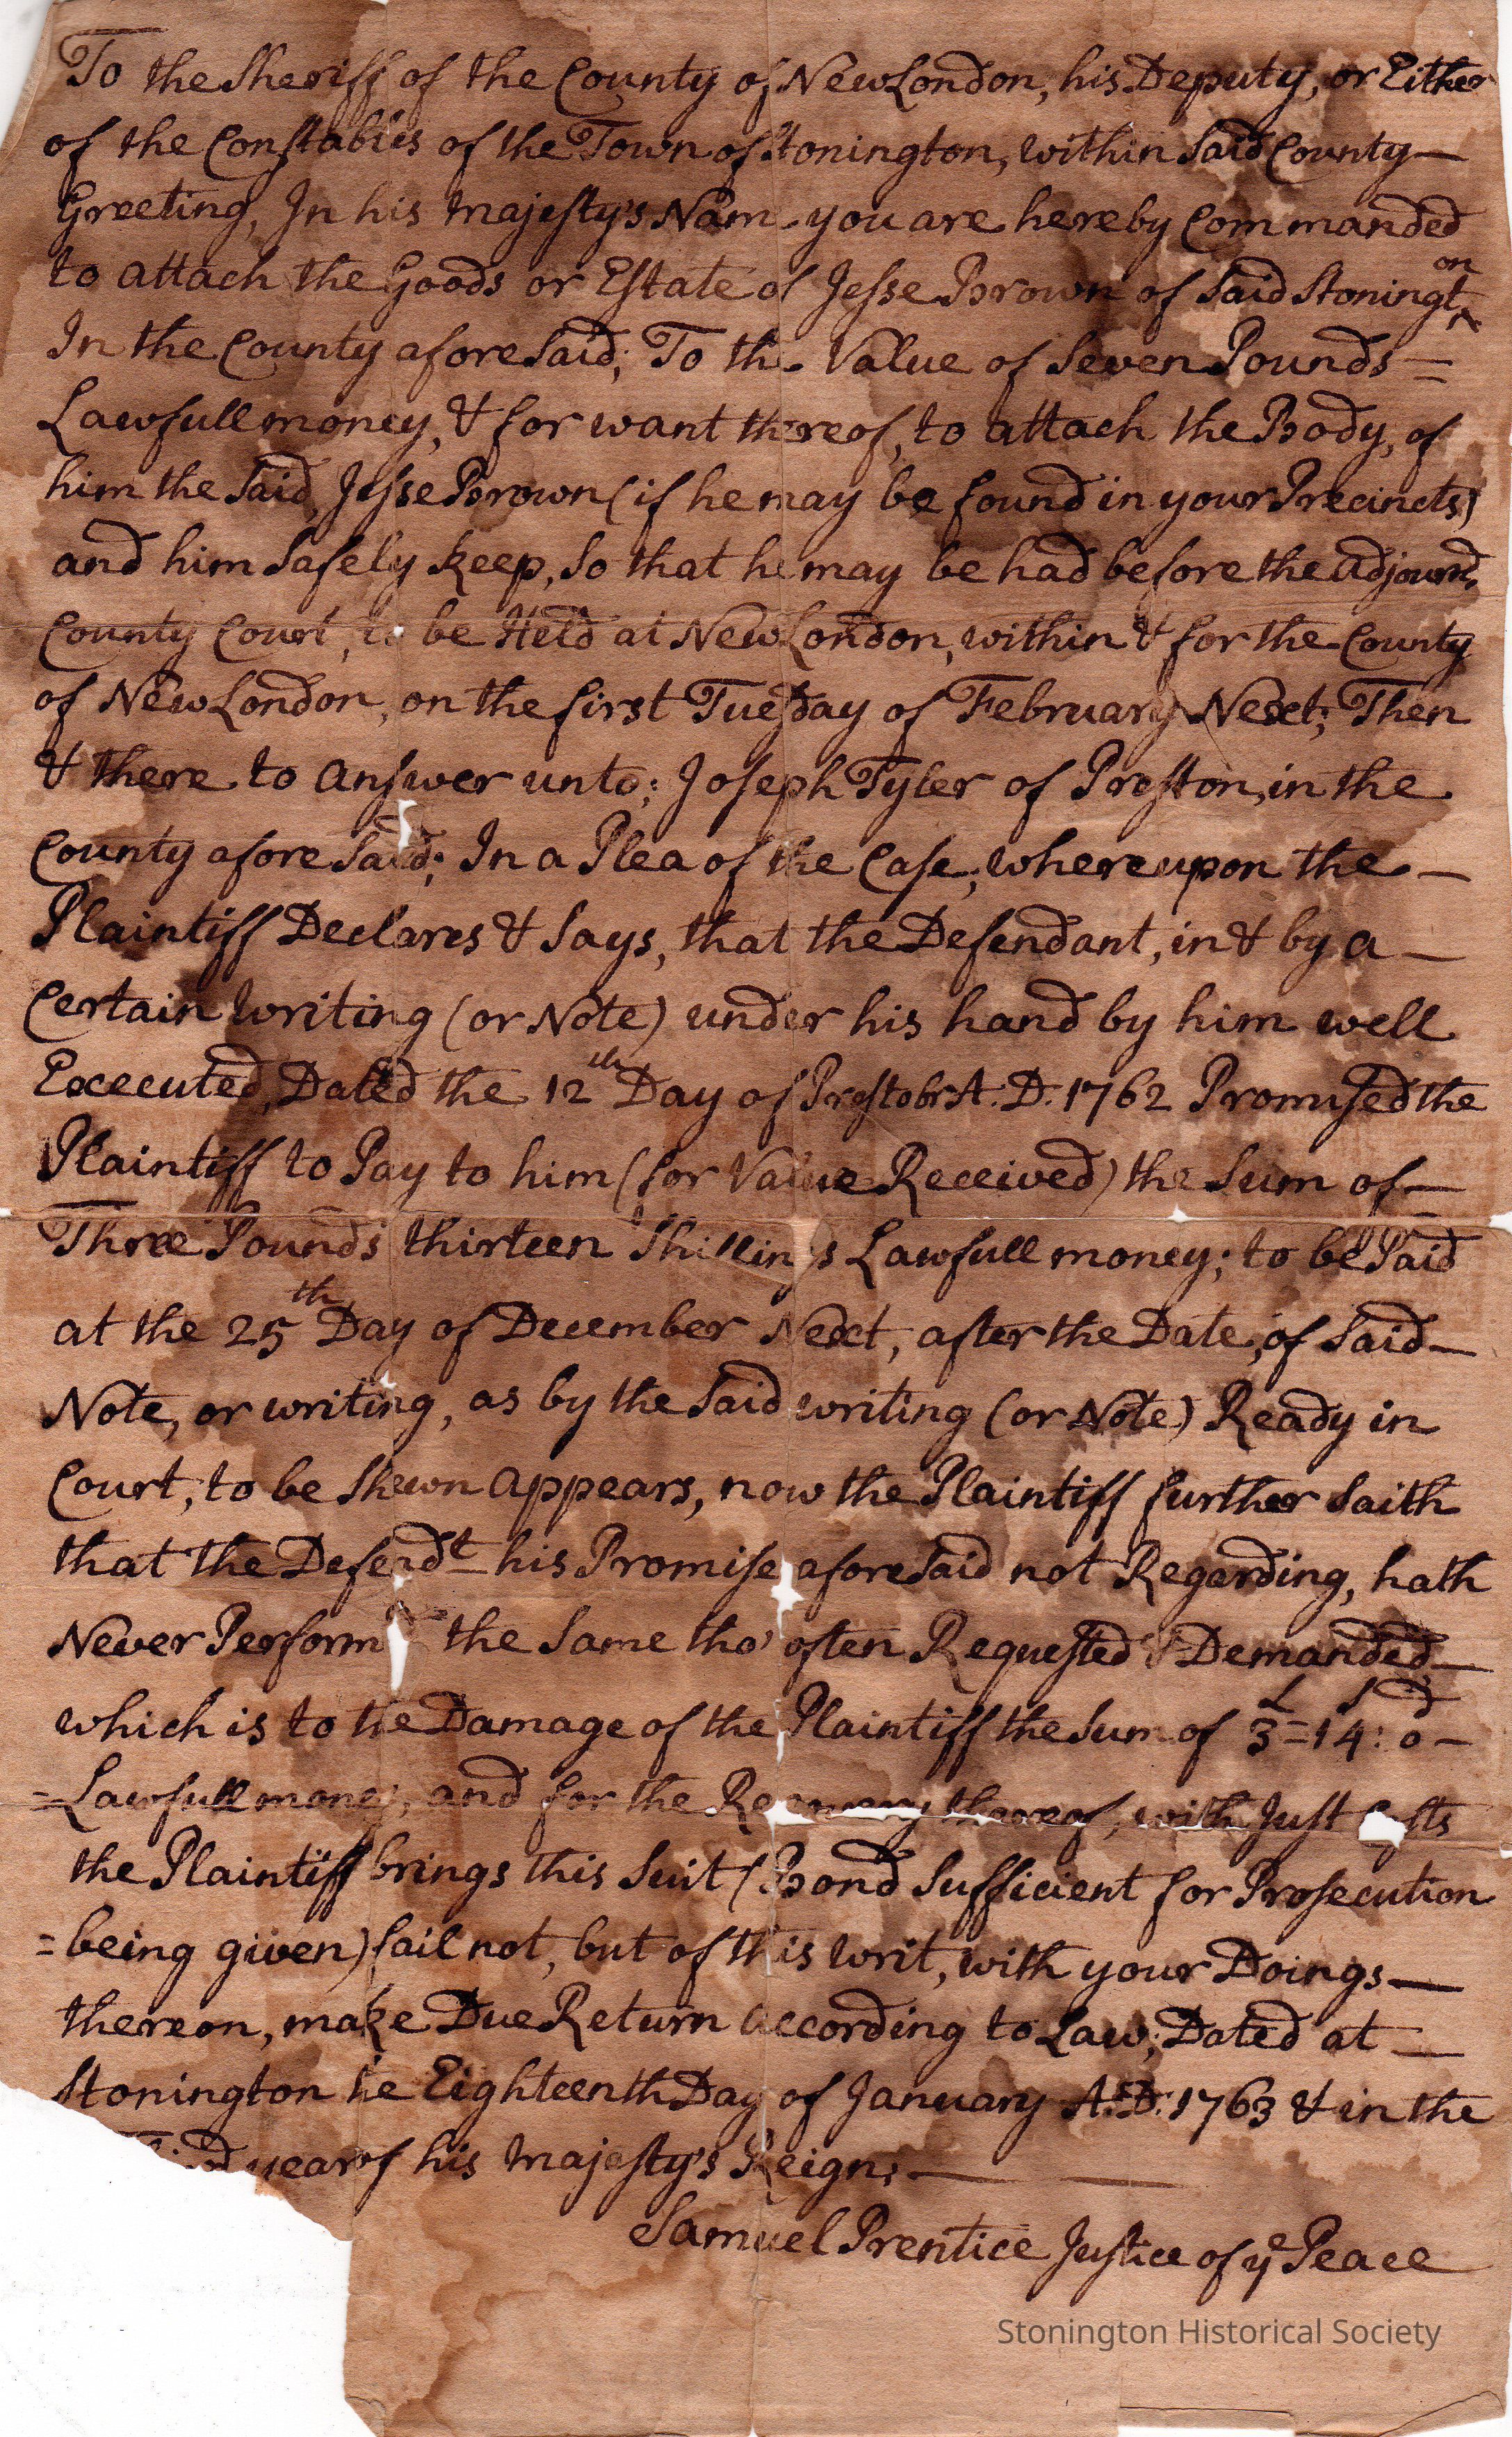 To the Sheriff of the County of New London, his Deputy, or Either
of the Constables of the Town of Stonington, within Said County —
Greeting, In his Majesty's Nam you are hereby Commanded
to attach the Goods or Estate of Jesse Brown of Said Stonington
In the County aforeSaid; To the Value of Seven Pounds =
Lawfull money, & for want thereof, to attach the Body, of
him the Said, Jesse Brown (if he may be found in your Precincts)
and him Safely keep, So that he may be had before the adjournd
County Court, to be Held at New London, within & for the County
of New London, on the first Tuesday of February Next; Then
& there to answer unto; Joseph Tyler of Preston, in the
County aforeSaid; In a Plea of the Case; whereupon the —
Plaintiff Declares & Says, that the Defendant, in & by a —
Certain writing (or Note) under his hand by him well
Executed, Dated the 12th Day of A:D: 1762 Promised the
Plaintiff to Pay to him (for Value Received) the Sum of —
Three Pounds thirteen Shillings Lawfull money; to be Paid
at the 25th Day of December Next, after the Date, of Said —
Note, or writing, as by the Said writing (or Note) Ready in
Court, to be Shewn appears, now the Plaintiff further Saith
that the Defendt his Promise aforeSaid not Regarding, hath
Never Perform the Same tho' often Requested & Demanded —
which is to the Damage of the Plaintiff the Sum of £ S D 3=14:0 —
= Lawfull money, and for the Recovery thereof, with Just Costs
the Plaintiff brings this Suit (Bond Sufficient for Prosecution
= being given) fail not, but of this writ, with your Doings —
thereon, make Due Return according to Law; Dated at —
Stonington the Eighteenth Day of January A:D: 1763 & in the
Third year of his Majesty's Reign; —
Samuel Prentice Justice of ye Peace
Stonington Historical Society